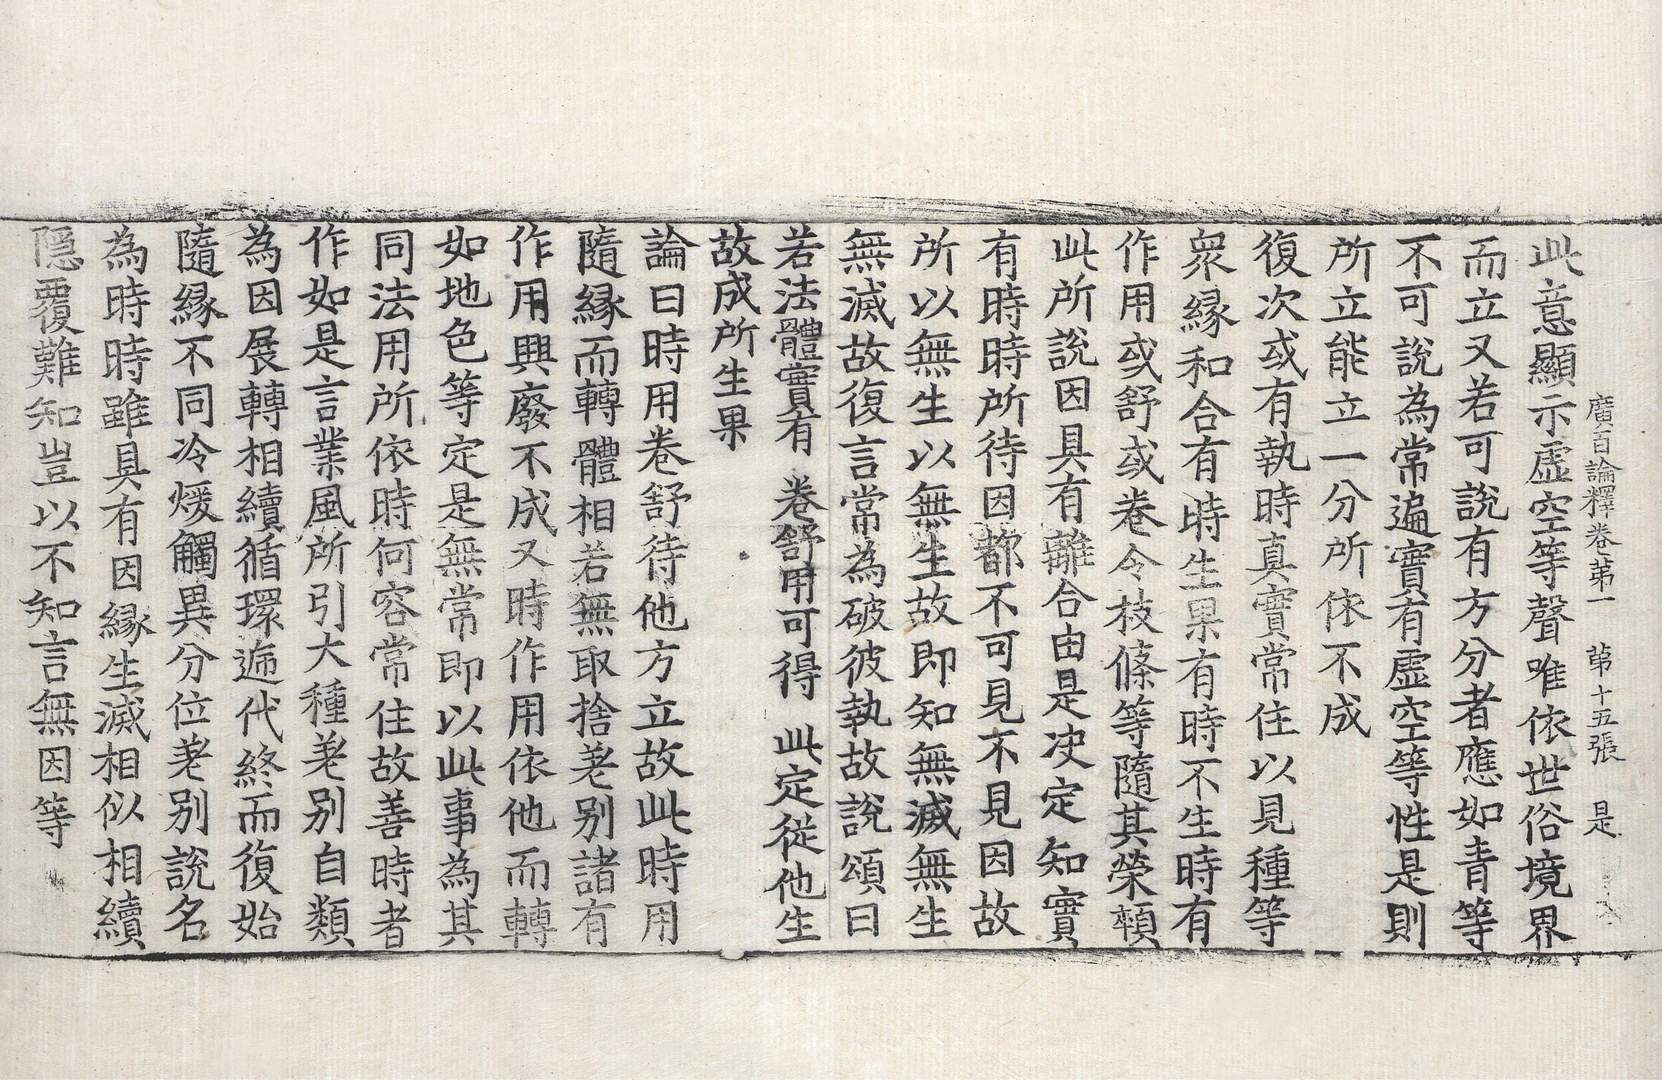 廣百論釋卷苐一　苐十五張　是
此意顯示虛空等聲唯依世俗境界
而立又若可說有方分者應如青等
不可說為常遍實有虛空等性是則
所立能立一分所依不成
復次或有執時真實常住以見種等
衆緣和合有時生果有時不生時有
作用或舒或卷令枝條等隨其榮頓
此所說因具有離合由是决定知實
有時時所待因都不可見不見因故
所以無生以無生故即知無滅無生
無滅故復言常為破彼執故說頌曰
若法體實有　卷舒用可得　此定從他生
故成所生果
論曰時用卷舒待他方立故此時用
隨緣而轉體相若無取捨差別諸有
作用興廢不成又時作用依他而轉
如地色等定是無常即以此事為其
同法用所依時何容常住故善時者
作如是言業風所引大種差別自類
為因展轉相續循環遞代終而復始
隨緣不同冷煖觸異分位差別說名
為時時雖具有因緣生滅相似相續
隱覆難知豈以不知言無因等